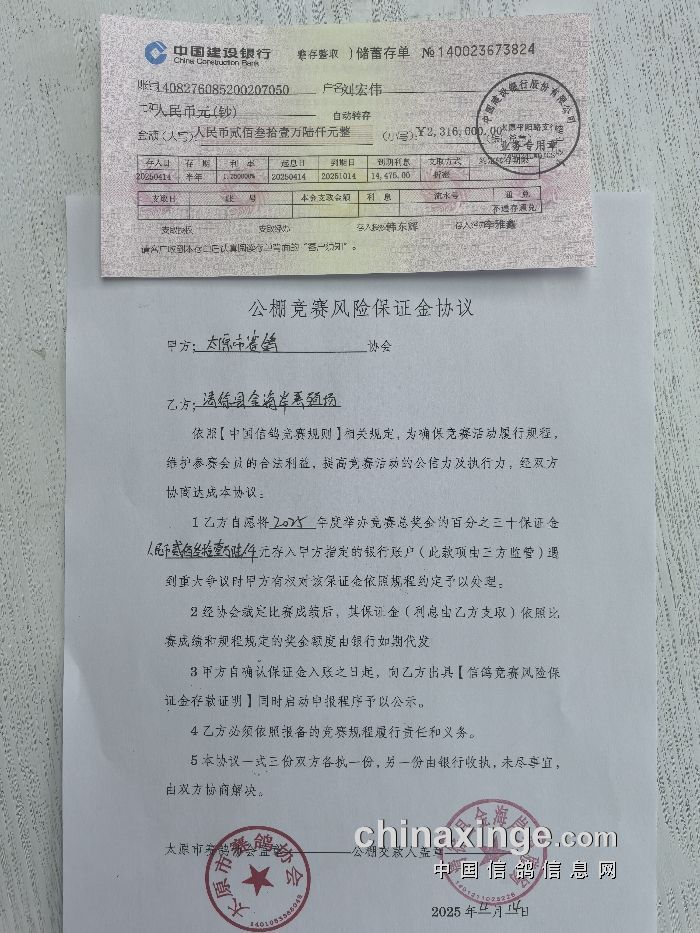 中国建设银行 整存整取 储蓄存单 № 140023673824
China Construction Bank
账号 1408276085200207050 户名 刘宏伟
人民币元(钞) 自动转存
金额(大写) 人民币贰佰叁拾壹万陆仟元整 (小写) ¥2,316,000.00
存入日 存期 利率 起息日 到期日 到期利息 支取方式
20250414 半年 20250414 20251014 14,475.00
支取日 账号 本金支取金额 利息 流水号 通兑
支取授权 支取经办 存入授权 韩东辉 存入经办 李雅鑫
请客户收到本存单后认真阅读存单背面的“客户须知”。
中国建设银行股份有限公司
太原平阳路支行
业务专用章
公棚竞赛风险保证金协议
甲方: 太原市赛鸽 协会
乙方: 清徐县金海岸养殖场
依照【中国信鸽竞赛规则】相关规定,为确保竞赛活动履行规程,
维护参赛会员的合法利益,提高竞赛活动的公信力及执行力,经双方
协商达成本协议。
1 乙方自愿将 2025 年度举办竞赛总奖金的百分之三十保证金
人民币贰佰叁拾壹万陆仟元存入甲方指定的银行账户(此款项由三方监管)遇
到重大争议时甲方有权对该保证金依照规程约定予以处理。
2 经协会裁定比赛成绩后,其保证金(利息由乙方支取)依照比
赛成绩和规程规定的奖金额度由银行如期代发
3 甲方自确认保证金入账之日起,向乙方出具【信鸽竞赛风险保
证金存款证明】同时启动申报程序予以公示。
4 乙方必须依照报备的竞赛规程履行责任和义务。
5 本协议一式三份双方各执一份,另一份由银行收执,未尽事宜,
由双方协商解决。
太原市赛鸽协会盖章 公棚交款人盖章
太原市赛鸽协会
chinaxinge.com
中国信鸽信息网
2025 年 月 日